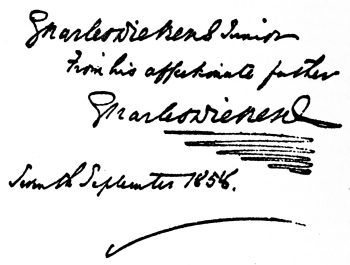 Charles Dickens Junior
From his affectionate father
Charles Dickens
Seventh September 1856.